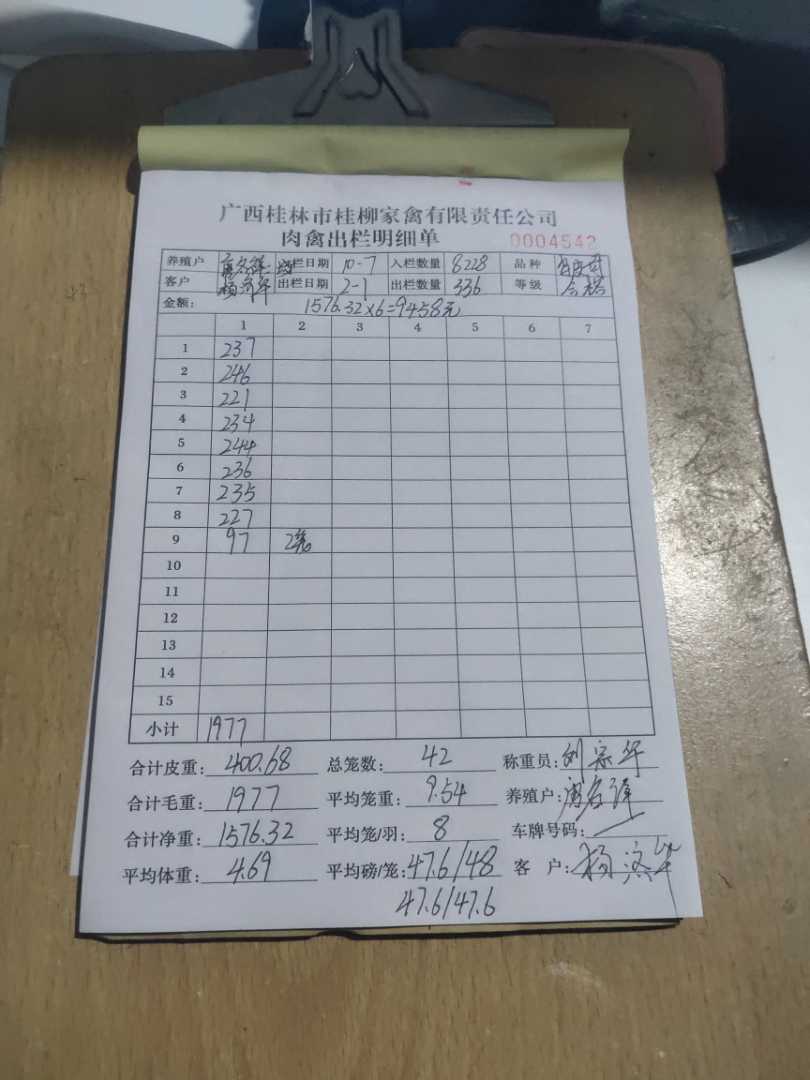 广西桂林市桂柳家禽有限责任公司
肉禽出栏明细单 0004542
养殖户 栏日期 10-7 入栏数量 8228 品种
客户 出栏日期 2-1 出栏数量 336 等级 合格
金额: 1576.32×6=9458元
1 2 3 4 5 6 7
1 237
2 246
3 221
4 234
5 244
6 236
7 235
8 227
9 97 2笼
10
11
12
13
14
15
小计 1977
合计皮重: 400.68 总笼数: 42 称重员: 刘宗华
合计毛重: 1977 平均笼重: 9.54 养殖户:
合计净重: 1576.32 平均笼/羽: 8 车牌号码:
平均体重: 4.69 平均磅/笼: 47.6/48 客 户: 杨
47.6/47.6